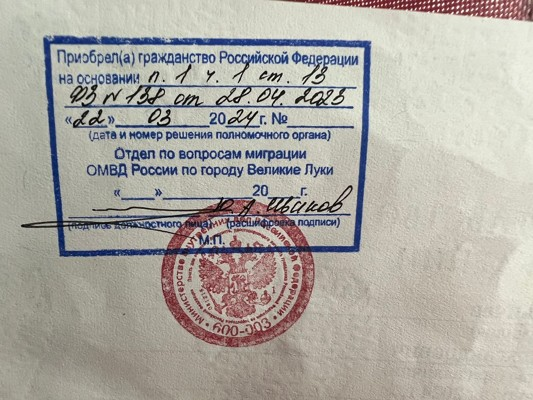 Приобрел(а) гражданство Российской Федерации
на основании п. 1 ч. 1 ст. 13
ФЗ № 138 от 28.04.2023
«22» 03 2024 г. №
(дата и номер решения полномочного органа)
Отдел по вопросам миграции
ОМВД России по городу Великие Луки
«    »          20    г.
(подпись должностного лица) (расшифровка подписи)
М.П.
Министерство внутренних дел Российской Федерации
600-003